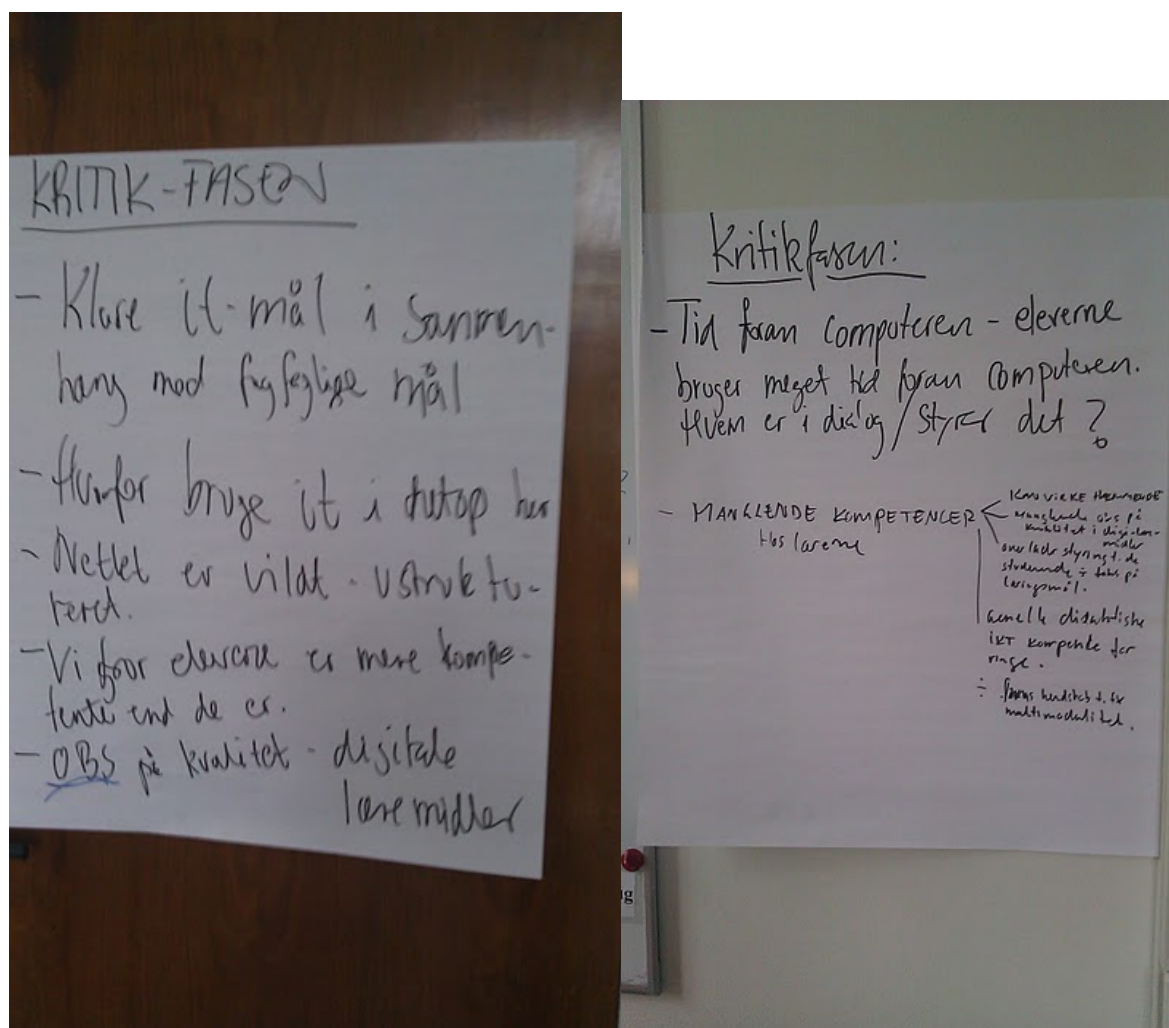 KRITIK-FASEN
- Klare it-mål i sammen-
hæng med fagfaglige mål
- Hvorfor bruge it i netop her
- Nettet er vildt - ustruktu-
reret.
- Vi tror eleverne er mere kompe-
tente end de er.
- OBS på kvalitet - digitale
læremidler
Kritikfasen:
- Tid foran computeren - eleverne
bruger meget tid foran computeren.
Hvem er i dialog / styrer det ?
- MANGLENDE KOMPETENCER
Hos lærerne
KAN VIRKE HÆMMENDE
manglende obs på
kvalitet i digi. lære-
midler
overlader styring t. de
studerende ÷ fokus på
læringsmål.
Generelle didaktiske
IKT kompetencer for
ringe.
÷ kendskab t.
multimodalitet.
g